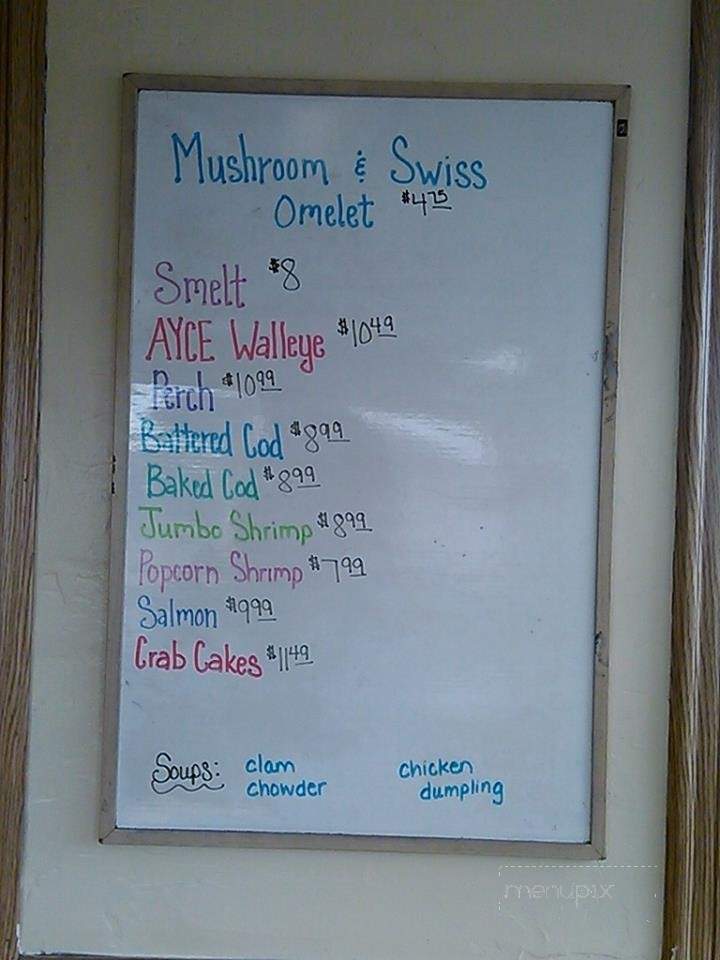 Mushroom & Swiss
Omelet $4.75
Smelt $8
AYCE Walleye $10.49
Perch $10.99
Battered Cod $8.99
Baked Cod $8.99
Jumbo Shrimp $8.99
Popcorn Shrimp $7.99
Salmon $9.99
Crab Cakes $11.49
Soups: clam chicken
chowder dumpling
menupix